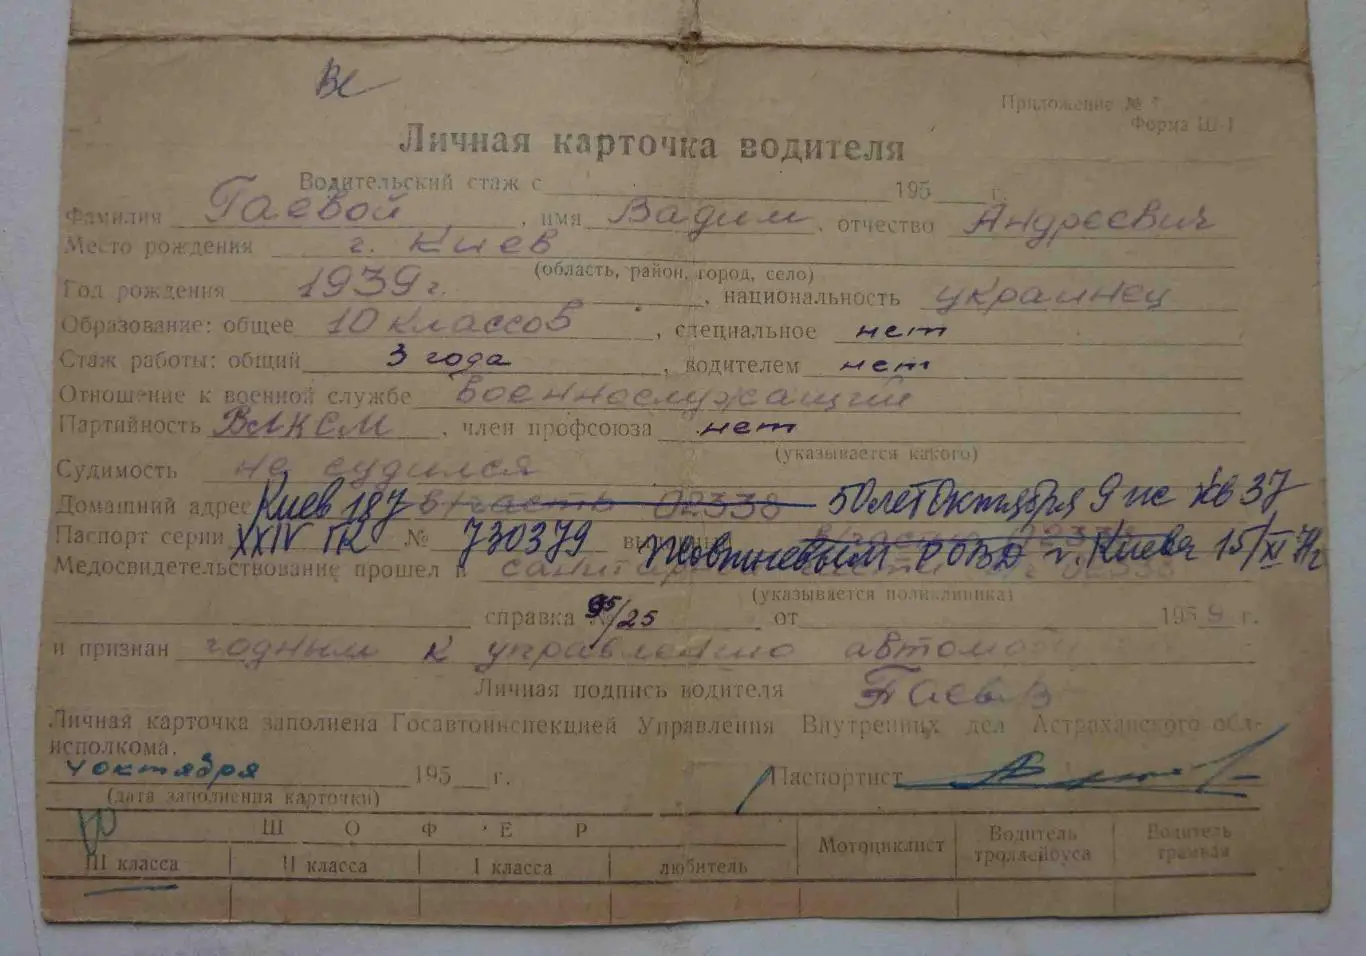 Вс
Приложение №
Форма Ш-1
Личная карточка водителя
Водительский стаж с 195 г.
Фамилия Гаевой, имя Вадим, отчество Андреевич
Место рождения г. Киев
(область, район, город, село)
Год рождения 1939 г., национальность украинец
Образование: общее 10 классов, специальное нет
Стаж работы: общий 3 года, водителем нет
Отношение к военной службе военнослужащий
Партийность ВЛКСМ, член профсоюза нет
(указывается какого)
Судимость не судился
Домашний адрес Киев 187 в/часть 02338 50 лет Октября 9 кв 37
Паспорт серии XXIV ГК № 730379 Жовтневым РОВД г. Киева 15/XI
Медосвидетельствование прошел в 02338
(указывается поликлиника)
справка № 95/25 от 1959 г.
и признан годным к управлению
Личная подпись водителя
Личная карточка заполнена Госавтоинспекцией Управления Внутренних дел Астраханского обл-
исполкома.
4 октября 195 г. Паспортист
(дата заполнения карточки)
ШОФЕР Мотоциклист Водитель троллейбуса Водитель трамвая
III класса II класса I класса любитель